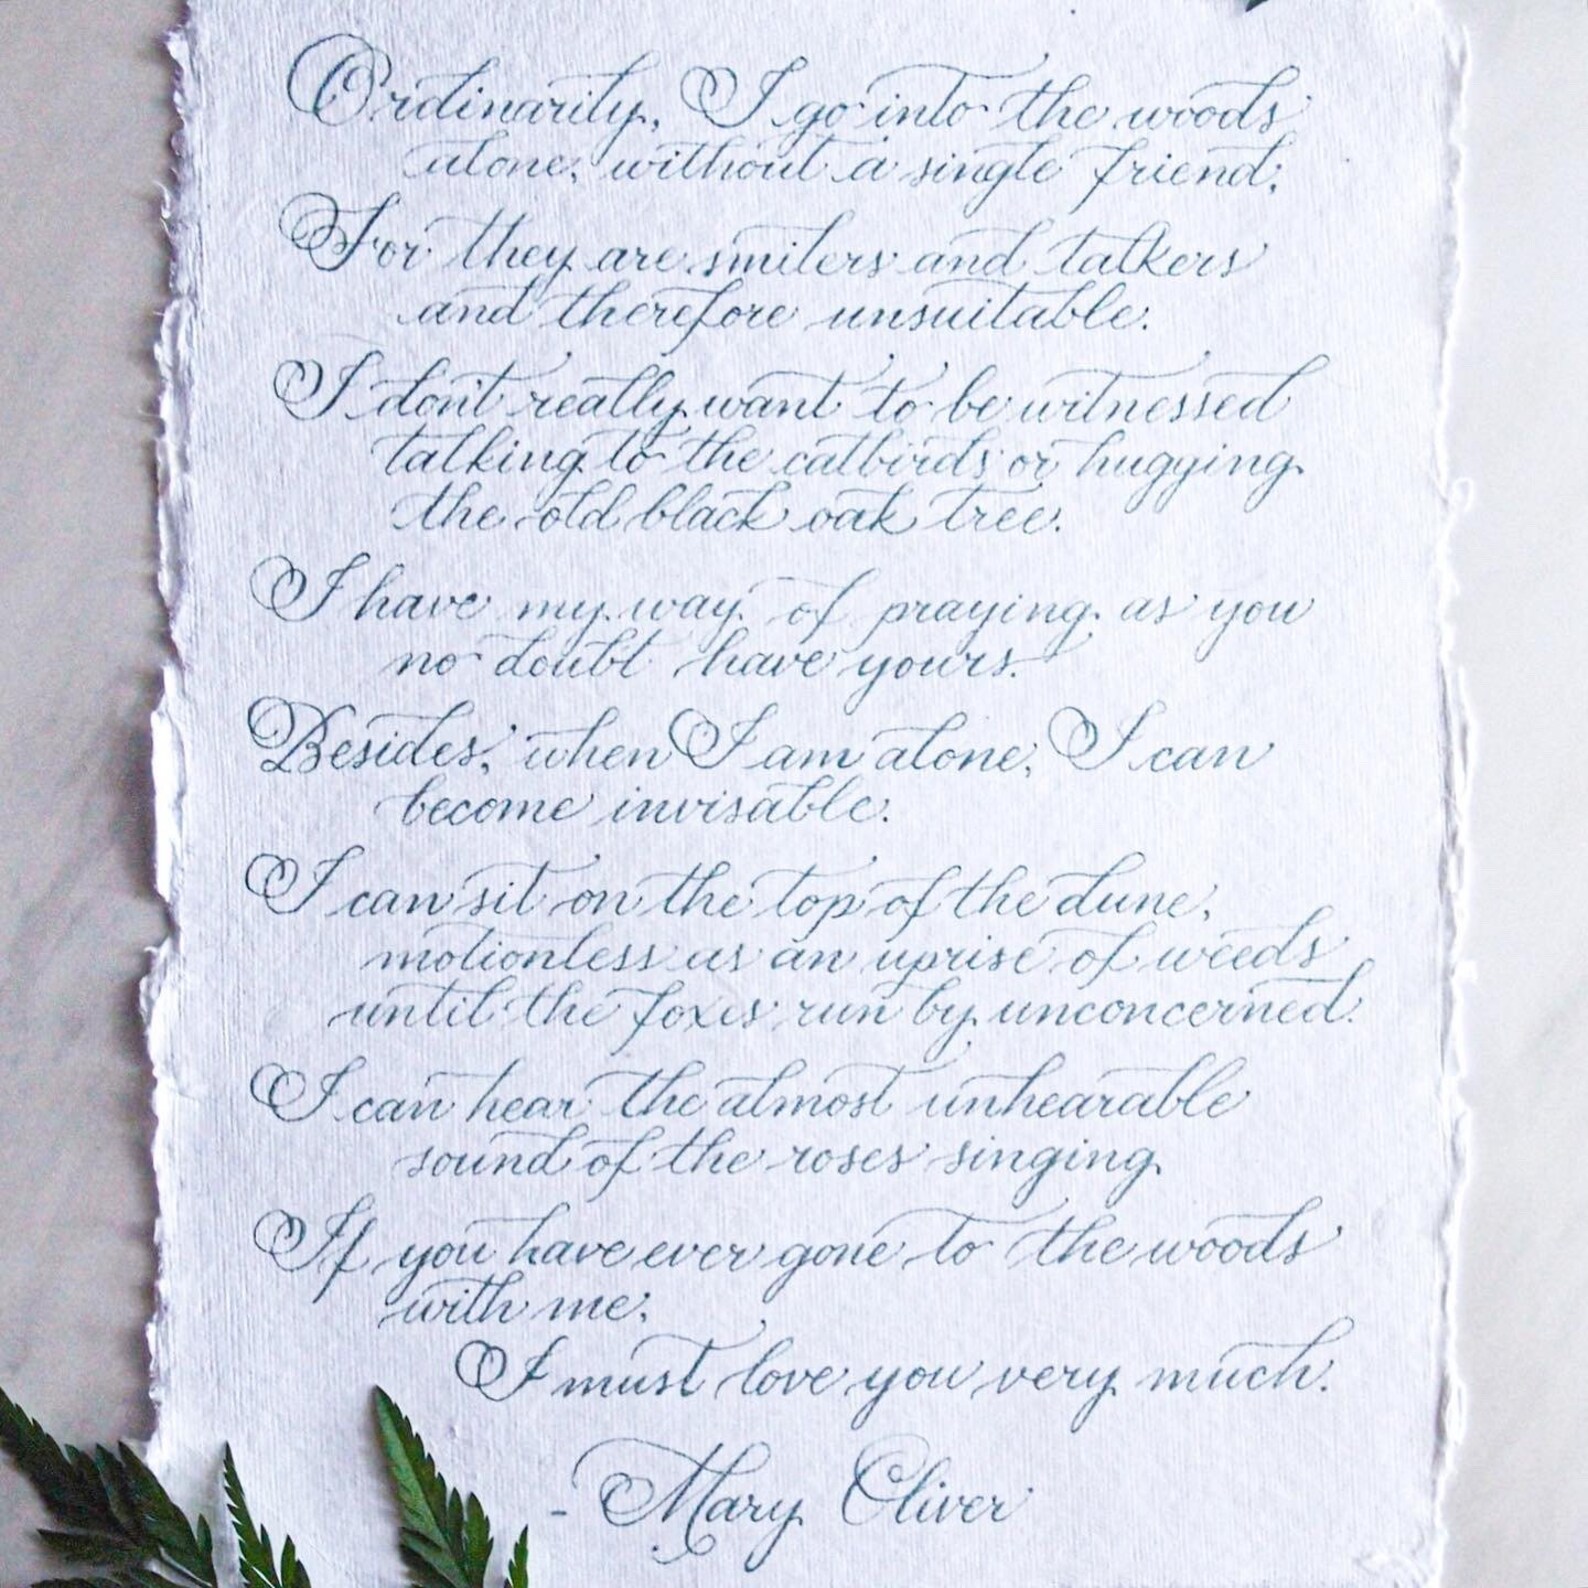 Ordinarily, I go into the woods
alone, without a single friend,
For they are smilers and talkers
and therefore unsuitable.
I don't really want to be witnessed
talking to the catbirds or hugging
the old black oak tree.
I have my way of praying as you
no doubt have yours.
Besides, when I am alone, I can
become invisable.
I can sit on the top of the dune,
motionless as an uprise of weeds
until the foxes run by unconcerned.
I can hear the almost unhearable
sound of the roses singing.
If you have ever gone to the woods
with me,
I must love you very much.
- Mary Oliver